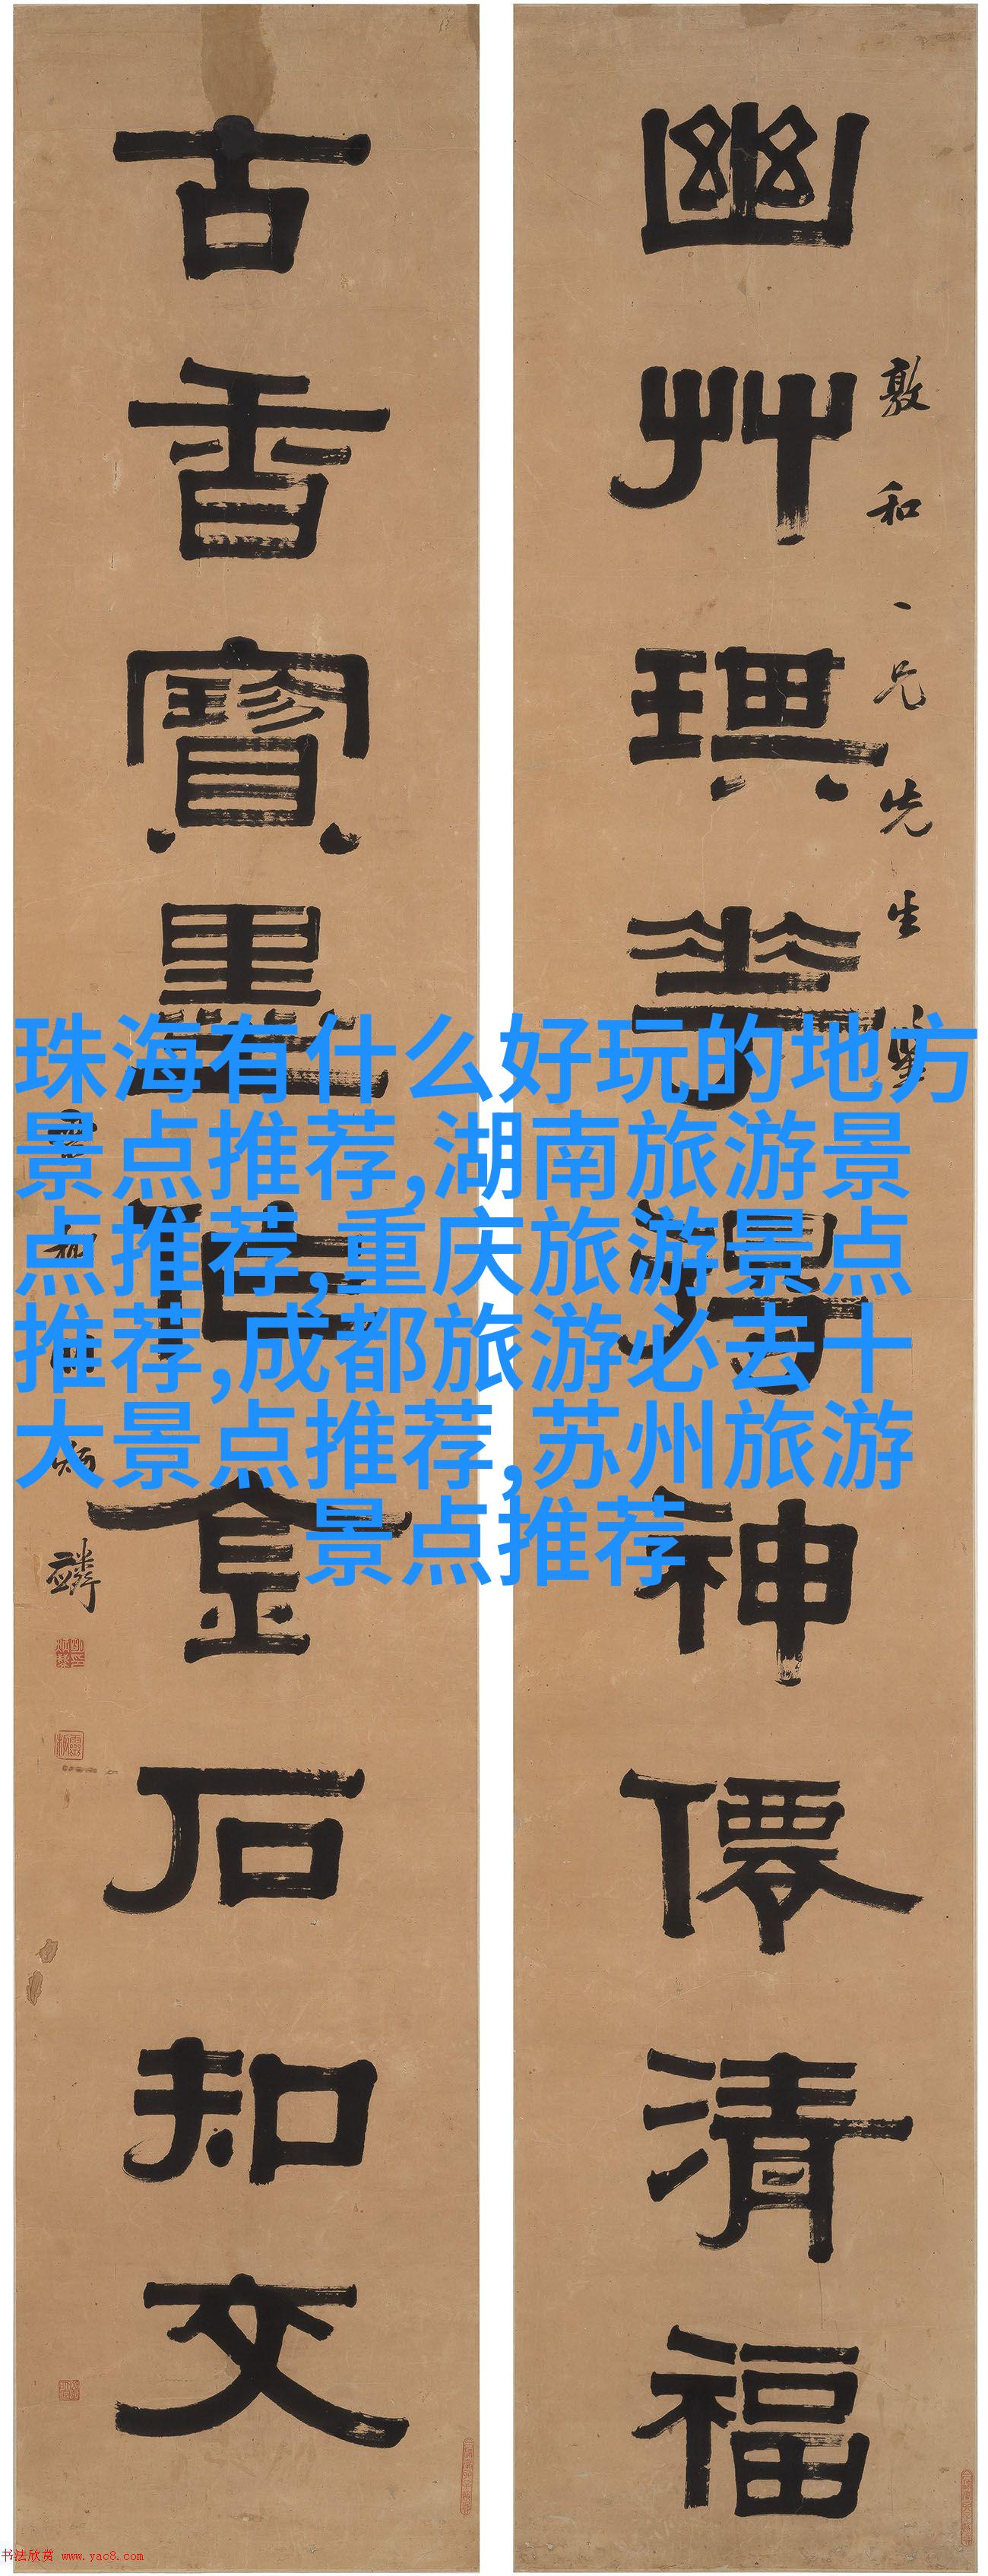 幽艸琪華得神僊清福
敦和一兄先生鑒
古香寶墨作金石知交
珠海有什么好玩的地方
景点推荐,湖南旅游景
点推荐,重庆旅游景点
推荐,成都旅游必去十
大景点推荐,苏州旅游
景点推荐
书法欣赏 www.yac8.com